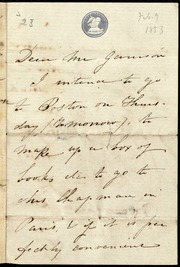 23
Feb. 9
1853
Dear Mr Garrison
I intend to go
to Boston on Thurs-
day (tomorrow), to
make up a box of
books &c to go to
Mrs Chapman in
Paris, & if it is per
fectly convenient